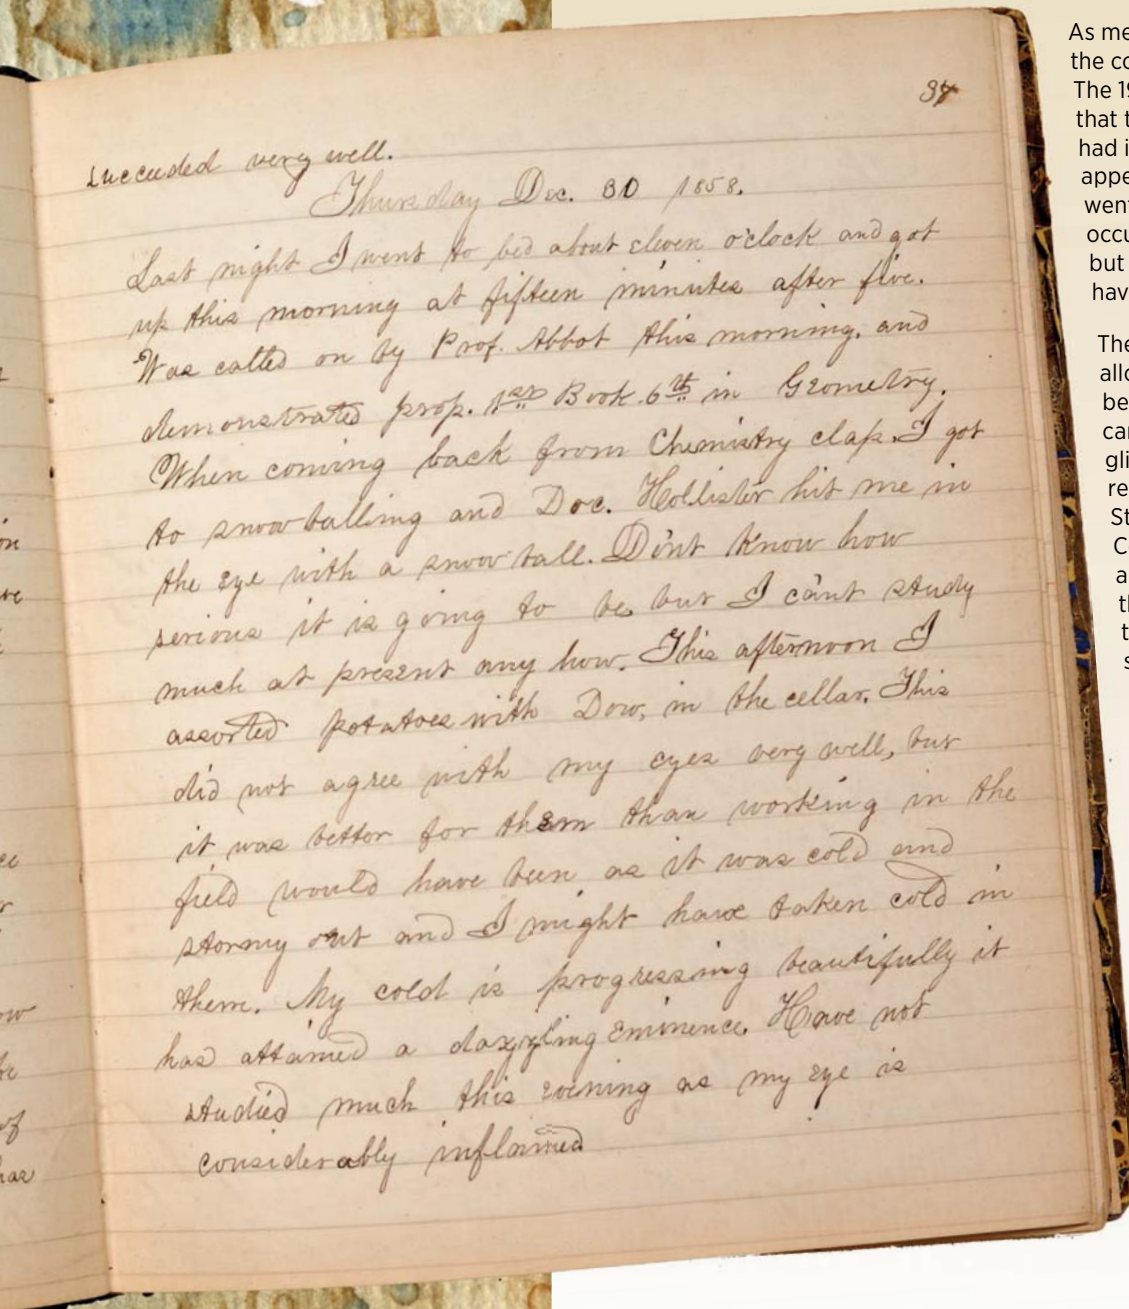 37
succeeded very well.
Thursday Dec. 30 1858.
Last night I went to bed about eleven o'clock and got
up this morning at fifteen minutes after five.
Was called on by Prof. Abbot this morning, and
demonstrated prop. 1st Book 6th in Geometry.
When coming back from Chemistry class. I got
to snow balling and Doc. Hollister hit me in
the eye with a snow ball. Dont know how
serious it is going to be but I cant study
much at present any how. This afternoon I
assorted potatoes with Dow, in the cellar. This
did not agree with my eyes very well, but
it was better for them than working in the
field would have been as it was cold and
stormy out and I might have taken cold in
them. My cold is progressing beautifully it
has attained a dazzling eminence. Have not
studied much this evening as my eye is
considerably inflamed
on
ow
of
has
As me
the co
The 19
that t
had i
appe
went
occu
but
hav
The
allo
be
car
gli
re
St
C
a
th
t
s